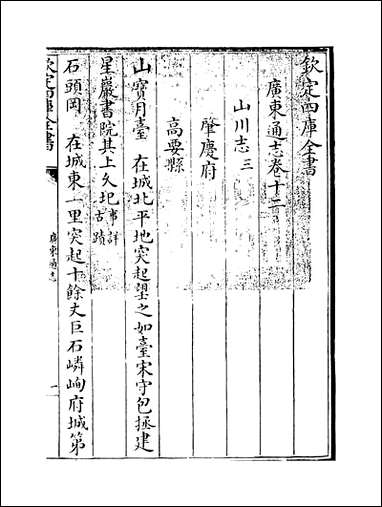 欽定四庫全書
廣東通志卷十二
山川志三
肇慶府
高要縣
山寶月臺 在城北平地突起望之如臺宋守包拯建
星巖書院其上久圮事詳古蹟
石頭岡 在城東一里突起十餘丈巨石嶙峋府城第
欽定四庫全書
廣東通志
一